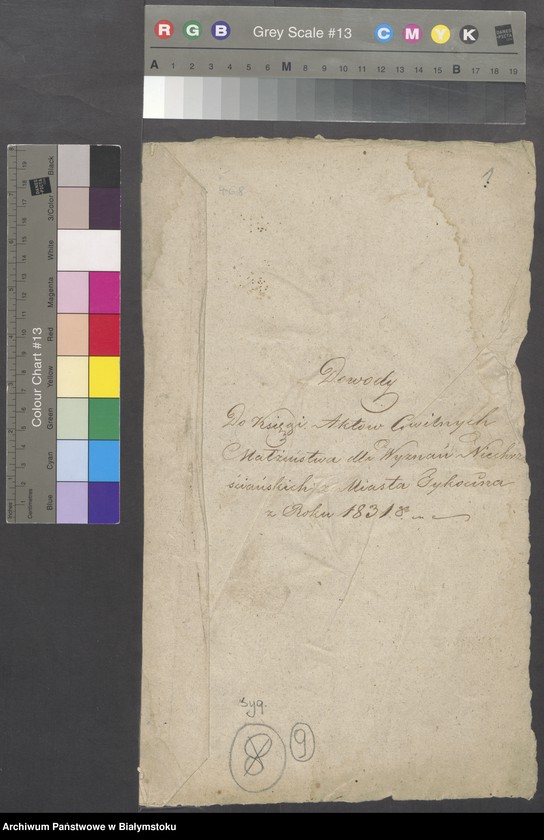 R G B Grey Scale #13 C M Y K
A 1 2 3 4 5 M 7 8 9 10 11 12 13 14 15 B 17 18 19
Colour Chart #13
Blue Cyan Green Yellow Red Magenta White 3/Color Black
Inches Centimetres
1
Dowody
Do Księgi Aktow Cwilnych
Małżeństwa dla Wyznań Niechrze
ściańskich z Miasta Tykocina
z Roku 1831
syg.
8 9
Archiwum Państwowe w Białymstoku